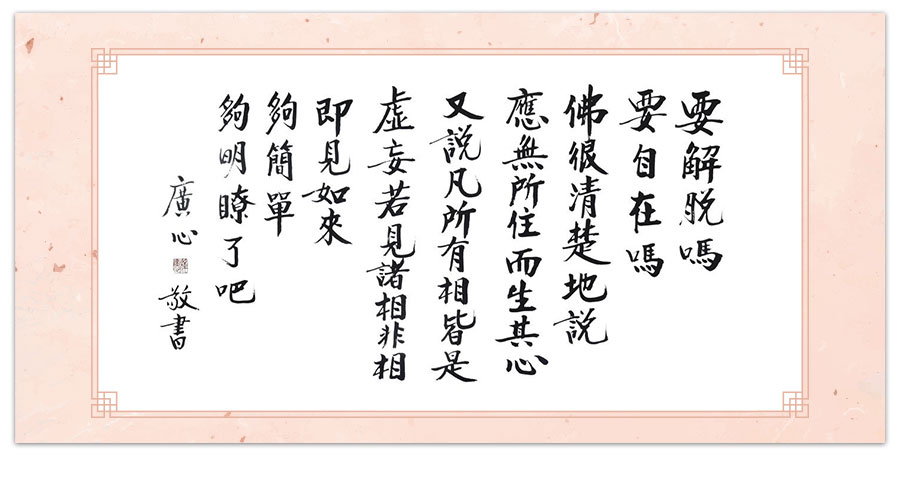 要解脫嗎
要自在嗎
佛很清楚地說
應無所住而生其心
又說凡所有相皆是
虛妄若見諸相非相
即見如來
夠簡單
夠明瞭了吧
廣心
敬書